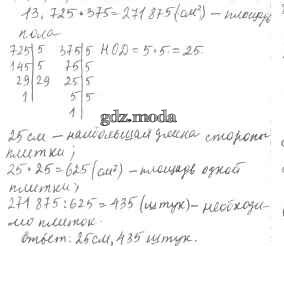 13. 725 • 375 = 271 875 (см²) – площадь
пола
725|5 375|5 НОД = 5 • 5 = 25
145|5 75|5
29|29 25|5
1| 5|5
1|
gdz.moda
25 см – наибольшая длина стороны
плитки;
25 • 25 = 625 (см²) – площадь одной
плитки;
271 875 : 625 = 435 (штук) – необходи-
мо плиток.
Ответ: 25 см, 435 штук.